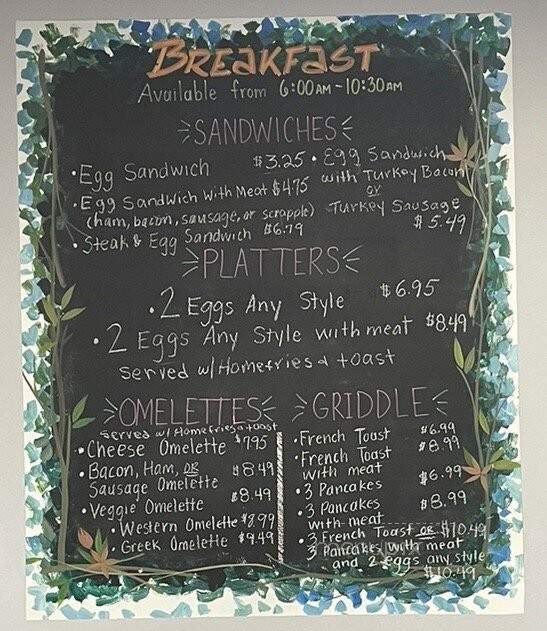 BREAKFAST
Available from 6:00AM-10:30AM
SANDWICHES
• Egg Sandwich $3.25
• Egg Sandwich with Meat $4.75
(ham, bacon, sausage, or scrapple)
• Steak & Egg Sandwich $6.79
• Egg Sandwich
with Turkey Bacon
or
Turkey Sausage
$5.49
PLATTERS
• 2 Eggs Any Style $6.95
• 2 Eggs Any Style with meat $8.49
Served w/ Homefries & toast
OMELETTES
Served w/ Homefries & toast
• Cheese Omelette $7.95
• Bacon, Ham, OR $8.49
Sausage Omelette
• Veggie Omelette $8.49
• Western Omelette $8.99
• Greek Omelette $9.49
GRIDDLE
• French Toast $6.99
• French Toast $8.99
with meat
• 3 Pancakes $6.99
• 3 Pancakes $8.99
with meat
• 3 French Toast OR $10.49
3 Pancakes with meat
and 2 eggs any style
$10.49